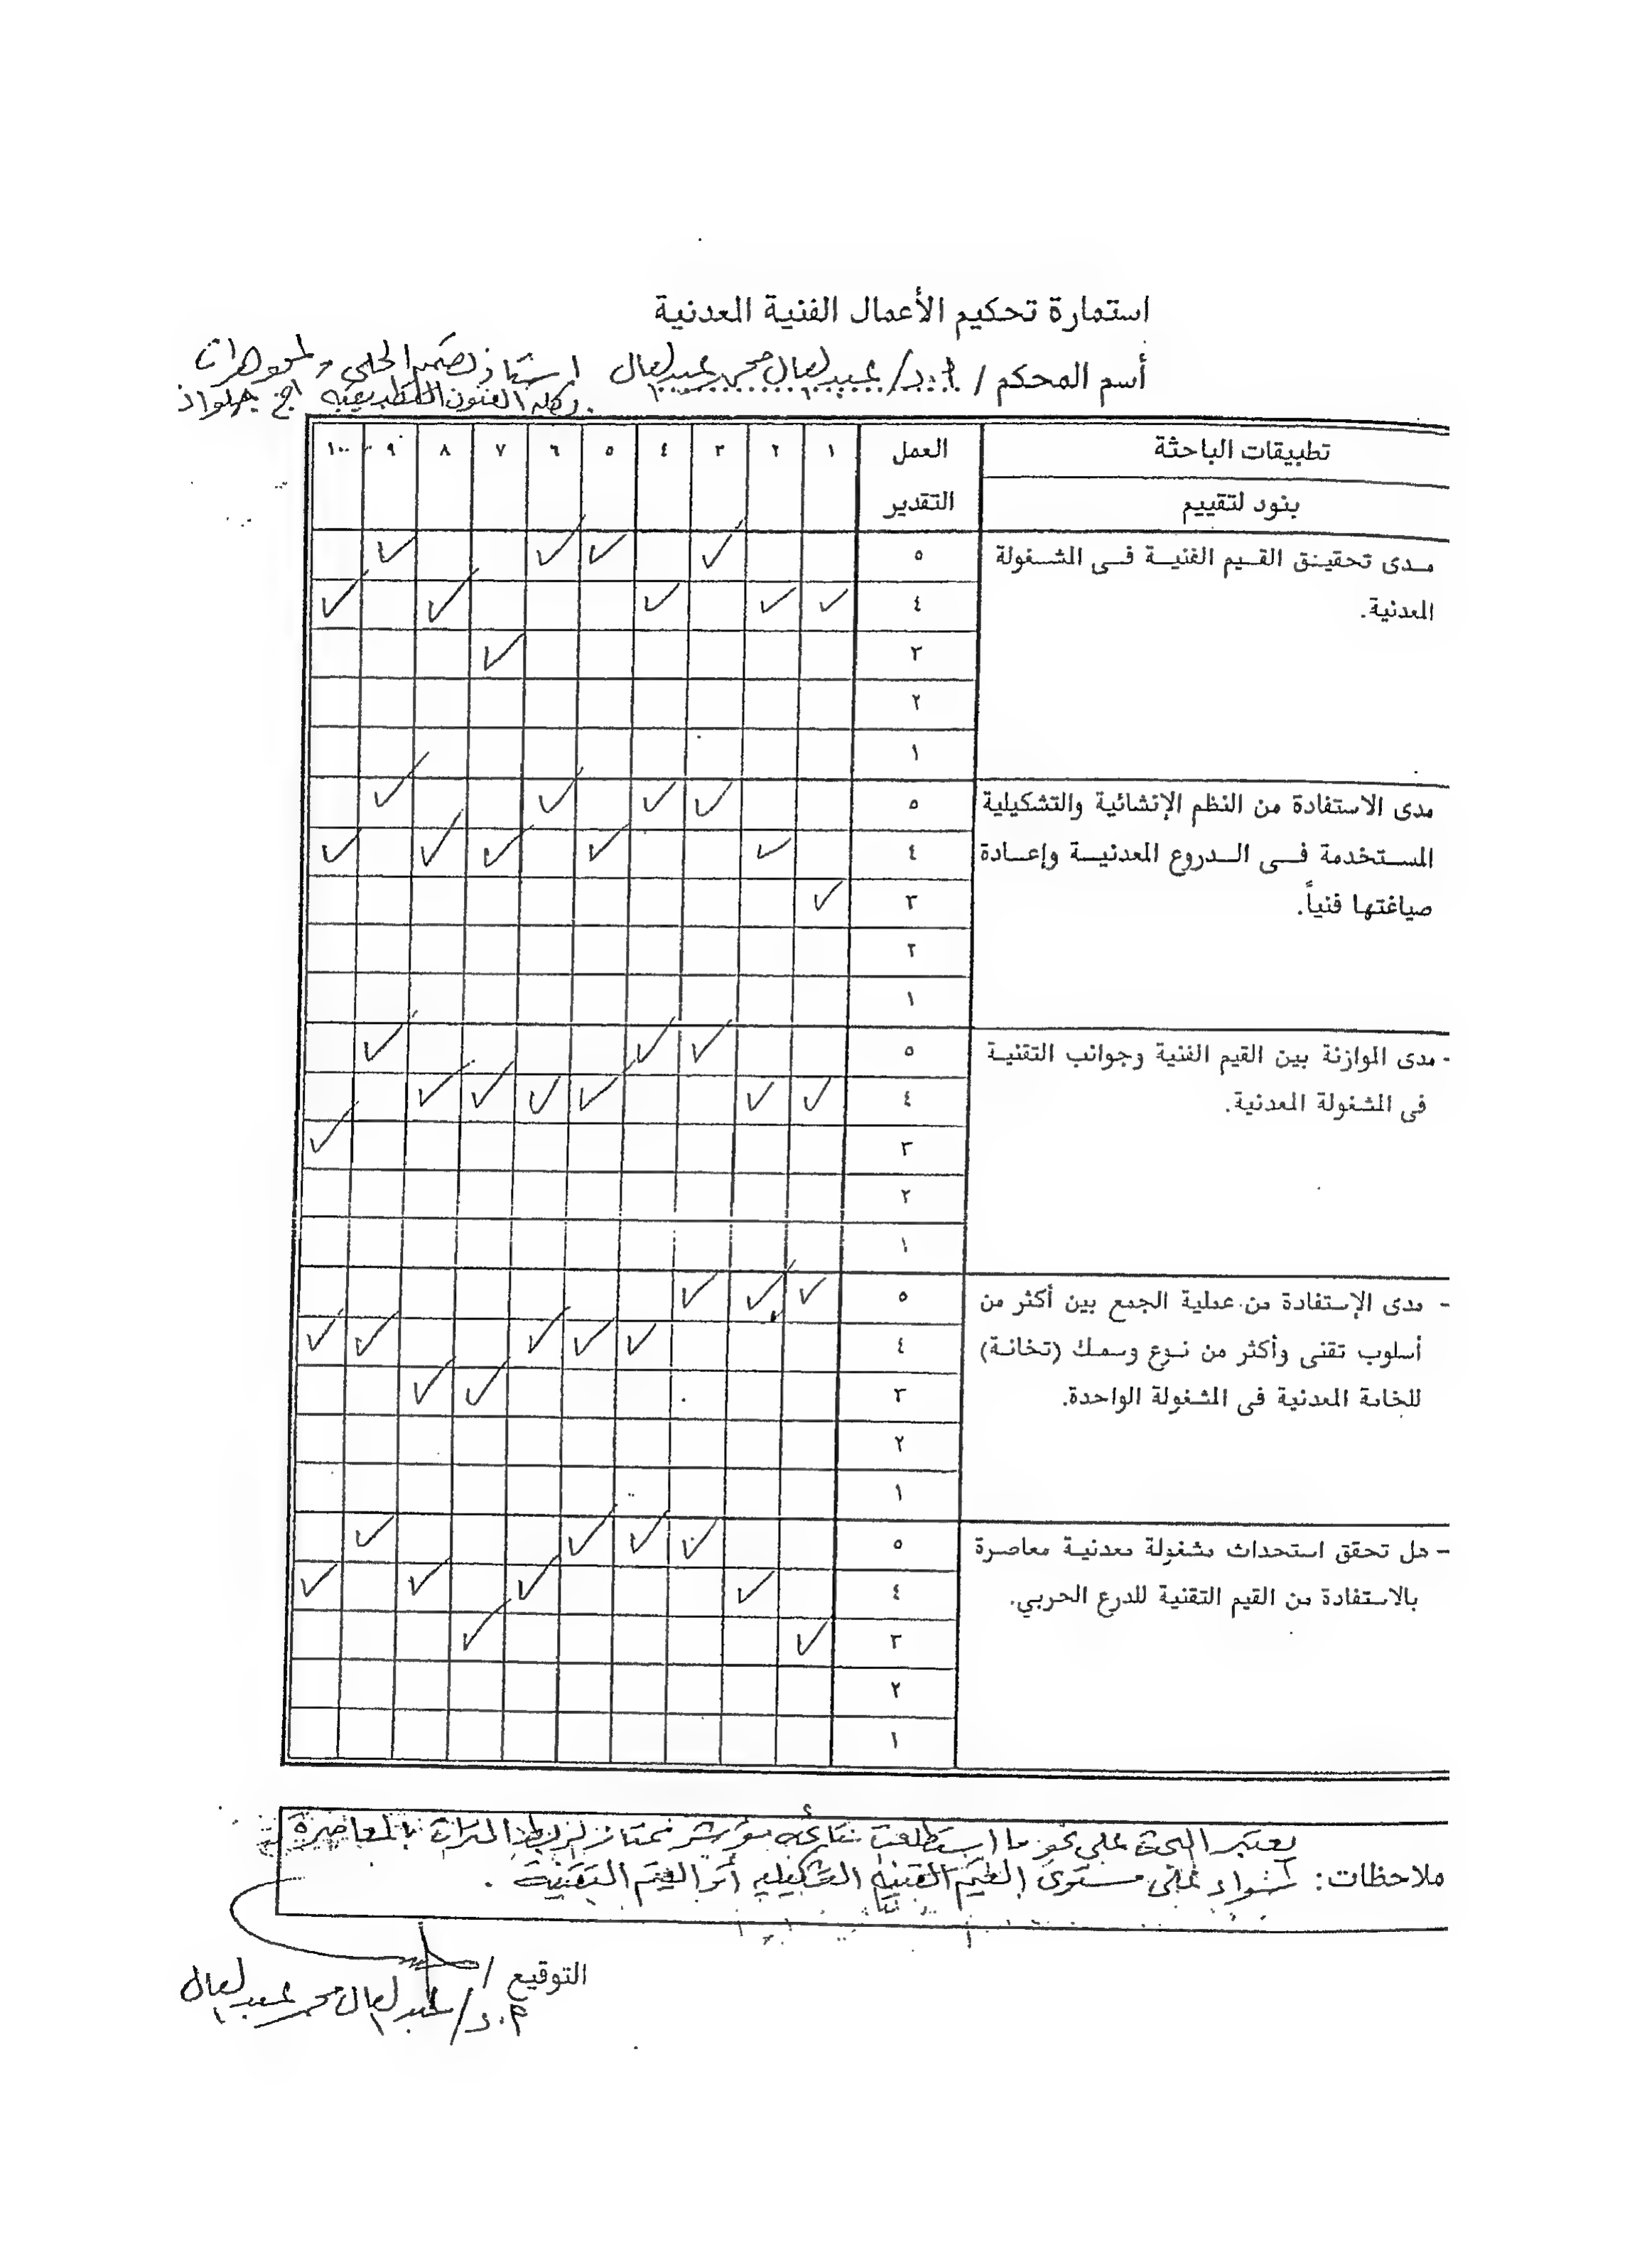 استمارة تحكيم الأعمال الفنية المعدنية
أسم المحكم / أ.د/ عبد العال محمد عبد العال استاذ تصميم الحلى والمجوهرات
بكلية الفنون التطبيقية ج حلوان
تطبيقات الباحثة العمل ١ ٢ ٣ ٤ ٥ ٦ ٧ ٨ ٩ ١٠
بنود لتقييم التقدير
مدى تحقيق القيم الفنية فى الشغولة ٥ ✓ ✓ ✓ ✓
المعدنية. ٤ ✓ ✓ ✓ ✓ ✓
٣ ✓
٢
١
مدى الاستفادة من النظم الإنشائية والتشكيلية ٥ ✓ ✓ ✓ ✓
المستخدمة فى الدروع المعدنية وإعادة ٤ ✓ ✓ ✓ ✓ ✓
صياغتها فنياً. ٣ ✓
٢
١
- مدى الموازنة بين القيم الفنية وجوانب التقنية ٥ ✓ ✓ ✓
فى الشغولة المعدنية. ٤ ✓ ✓ ✓ ✓ ✓ ✓
٣ ✓
٢
١
- مدى الإستفادة من عملية الجمع بين أكثر من ٥ ✓ ✓ ✓
أسلوب تقنى وأكثر من نوع وسمك (تخانة) ٤ ✓ ✓ ✓ ✓ ✓
للخامة المعدنية فى المشغولة الواحدة. ٣ ✓ ✓
٢
١
- هل تحقق استحداث مشغولة معدنية معاصرة ٥ ✓ ✓ ✓ ✓
بالاستفادة من القيم التقنية للدرع الحربي. ٤ ✓ ✓ ✓ ✓
٣ ✓ ✓
٢
١
يعتبر البحث على نحو ما استطلعت نتائجه مؤشر ممتاز لربط التراث بالمعاصرة
ملاحظات: سواء على مستوى القيم الفنية التشكيلية أو القيم التقنية .
التوقيع /
أ.د/ عبد العال محمد عبد العال